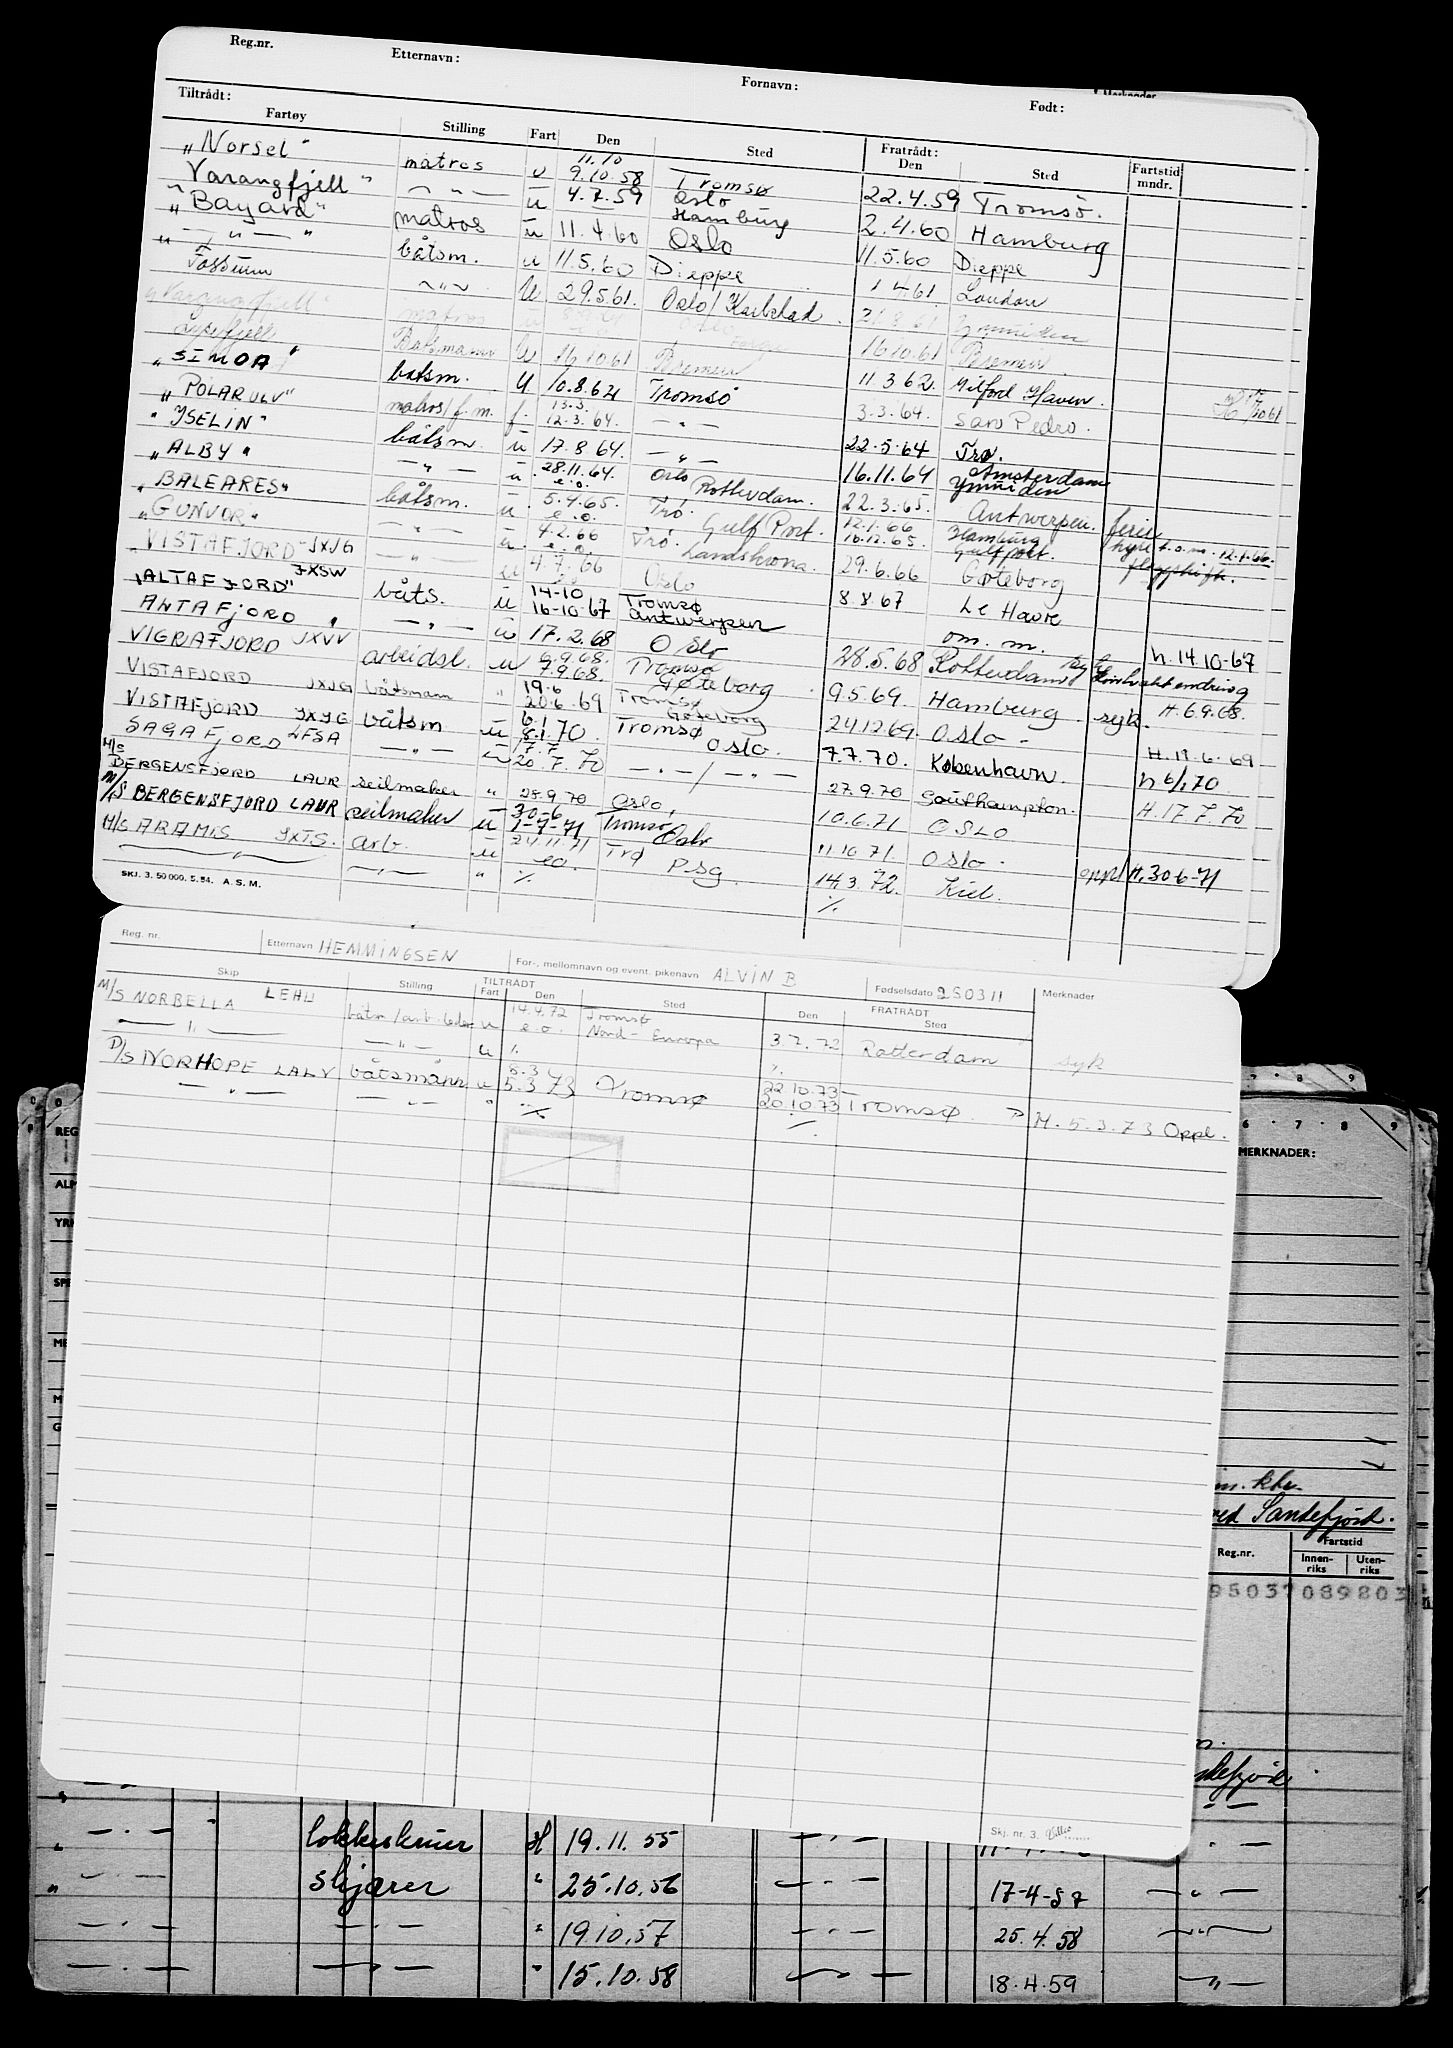 Reg.nr. Etternavn: Fornavn: Født:
Tiltrådt: Fratrådt:
Fartøy Stilling Fart Den Sted Den Sted Fartstid mndr.
"Norsel" matros u 11.10 9.10.58 Tromsø 22.4.59 Tromsø.
"Varangfjell" — " — u 4.7.59 Oslo Hamburg 2.4.60 Hamburg
"Bayard" matros u 11.4.60 Oslo 11.5.60 Dieppe
" — " — " båtsm. u 11.5.60 Dieppe 1 4.61 London
Fossum ~ " ~ U 29.5.61. Oslo/Karlstad. 21.8.61 Ymuiden
"Varangfjell" matros u Oslo 16 10.61 Bremen
Lysefjell Båtsmann U 16 10.61 Bremen 11 3 62. Milford Haven.
"SIMOA" båtsm. U 10.8.62 Tromsø 3.3.64. San Pedro.
"POLARULV" matros/f.m. f. 13.3. 12.3.64. — " — 22.5.64 Trø.
"YSELIN" båtsm. u 17.8 64. — " — 16.11.64 Amsterdam Ymuiden
"ALBY" — " — u. 28.11.64. e.o. Oslo Rotterdam. 22.3.65. Antwerpen. ferie
"BALEARES" båtsm. u. 5.4.65. e.o. Trø. Gulf Port. 12.1.66 10.12.65. Hamburg Gulfport. hyre t.o.m. 12.1.66. flaggskift.
"GUNVOR" — " — u. 4.2.66 e.o. Trø. Landskrona. 29.6.66 Göteborg
"VISTAFJORD" JXJG — " — u 4.7.66 Oslo 8.8.67 Le Havre
"ALTAFJORD" JXSW båts. u 14-10 16-10-67 Tromsø Antwerpen om.m. h.14.10-67
ANTAFJORD " — " — u 17.2.68 Oslo 28.5.68 Rotterdam
VIGRAFJORD JXVV arbeidsl. u 6.9.68. 7.9.68. Tromsø Gøteborg. 9.5.69. Hamburg syk. H.6.9.68.
VISTAFJORD JXJG båtsmann " 19.6 20.6.69 Tromsø Gøteborg 24.12.69. Oslo - H.19.6.69
VISTAFJORD JXJG båtsm u 6.1. 8.1.70. Tromsø Oslo. 7.7.70. København. h 6/1 70
SAGAFJORD LFSA — " — u 17.7 20.7.70 — " — / — " — 27.9.70 Southampton. H.17.7.70
M/S BERGENSFJORD LAUR seilmaker " 28.9.70 Oslo, 10.6.71 OSLO
M/S BERGENSFJORD LAUR seilmaker u 30.6 1-7-71 Tromsø, Oslo 11.10 71. Oslo. oppl H.30-6-71
M/S ARAMIS JXTS. arb. u 24.11.71 eo. Trø Psg. 14.3.72. Kiel.
— " — — " — " ./. ./.
SKJ. 3. 50 000. 5. 54. A. S. M.
Reg. nr. Etternavn HEMMINGSEN For-, mellomnavn og event. pikenavn ALVIN B Fødselsdato 250311 Merknader
TILTRÅDT FRATRÅDT
Skip Stilling Fart Den Sted Den Sted
M/S NORBELLA LEHU båtm/arb.leder u 14.4.72 e.o. Tromsø Nord-Europa 3.7.72 Rotterdam syk
— " — — " — u ./. ./.
D/S NORHOPE LALV båtsmann u 5.3 5.3 73 Tromsø 22.10.73 — 20.10.73 Tromsø M. 5.3.73 Oppl.
— " — — " — " ./. ./.
Skj. nr. 3.
MERKNADER:
ved Sandefjord.
Reg.nr. Fartstid
Innen-riks Uten-riks
95037089803
— . — lokkeskruer H 19.11.55 — . —
— . — skjærer " 25.10.56 — . — 17-4-57 — " —
— . — — . — " 19 10.57 — . — 25.4.58 — " —
— . — — — " 15.10.58 — — 18.4.59 — " —